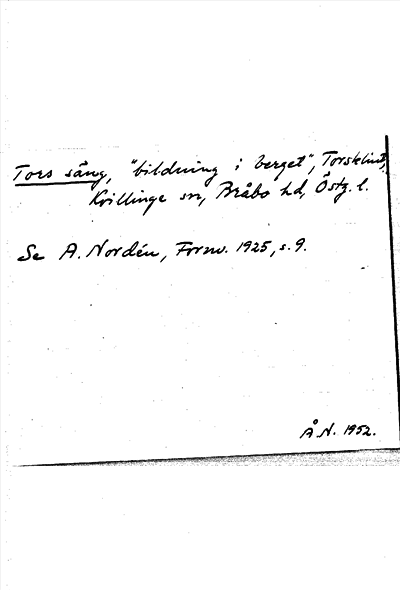 Tors säng, "bildning i berget", Torsklint,
Kvillinge sn, Bråbo hd, Östg. l.
Se A. Nordén, Fornv. 1925, s. 9.
Å. N. 1952.